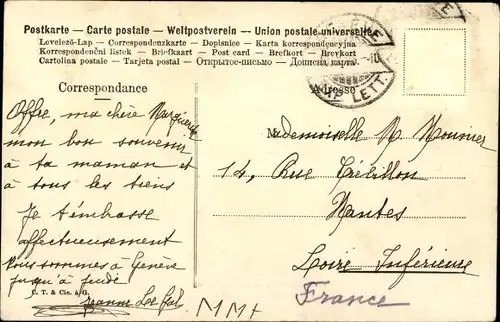 Postkarte — Carte postale — Weltpostverein — Union postale universelle
Levelező-Lap — Correspondenzkarte — Dopisnice — Karta korrespondencyjna
Korrespondenční listek — Briefkaart — Post card — Brefkort — Brevkort
Cartolina postale — Tarjeta postal — Открытое-письмо — Дописна карта.
LETT.
Correspondance
Adresse
Offre, ma chère Marguerite
mon bon souvenir
à ta maman et
à tous les tiens
Je t'embrasse
affectueusement
Nous sommes à Genève
jusqu'à jeudi
Jeanne
C. T. & Cie. à/G.
Mademoiselle M. Mounier
14, Rue Crébillon
Nantes
Loire Inférieure
France